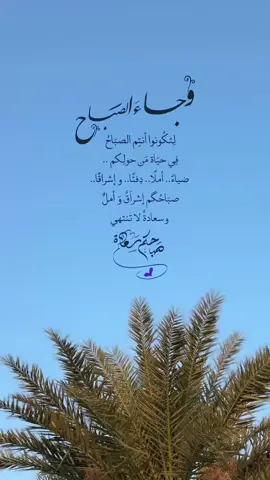 وجاءَ الصبَاح
لِتكُونوا أنتِم الصبَاحُ
فِي حيَاة مَن حولِكم ..
ضياءً.. أملًا.. دِفئًا.. و إشراقًا..
صبَاحُكم إشراقٌ وَ أملٌ
وسعادةٌ لا تنتهي
صباحكم سعادة